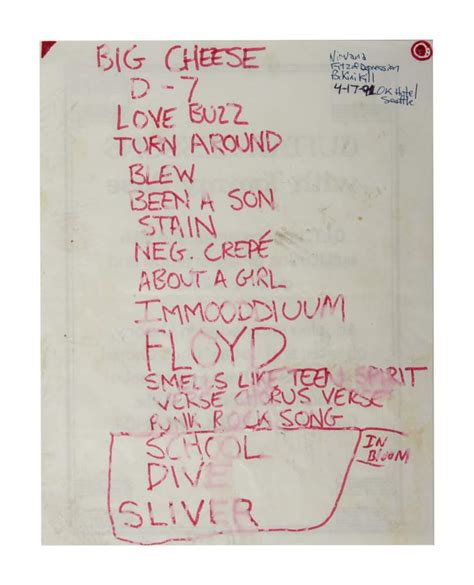 BIG CHEESE
Nirvana
Fitz of Depression
Bikini Kill
4-17-91 OK Hotel
Seattle
D-7
LOVE BUZZ
TURN AROUND
BLEW
BEEN A SON
STAIN
NEG. CREPÉ
ABOUT A GIRL
IMMOODDIUUM
FLOYD
SMELLS LIKE TEEN SPIRIT
VERSE CHORUS VERSE
PUNK ROCK SONG
SCHOOL
IN
BLOOM
DIVE
SLIVER